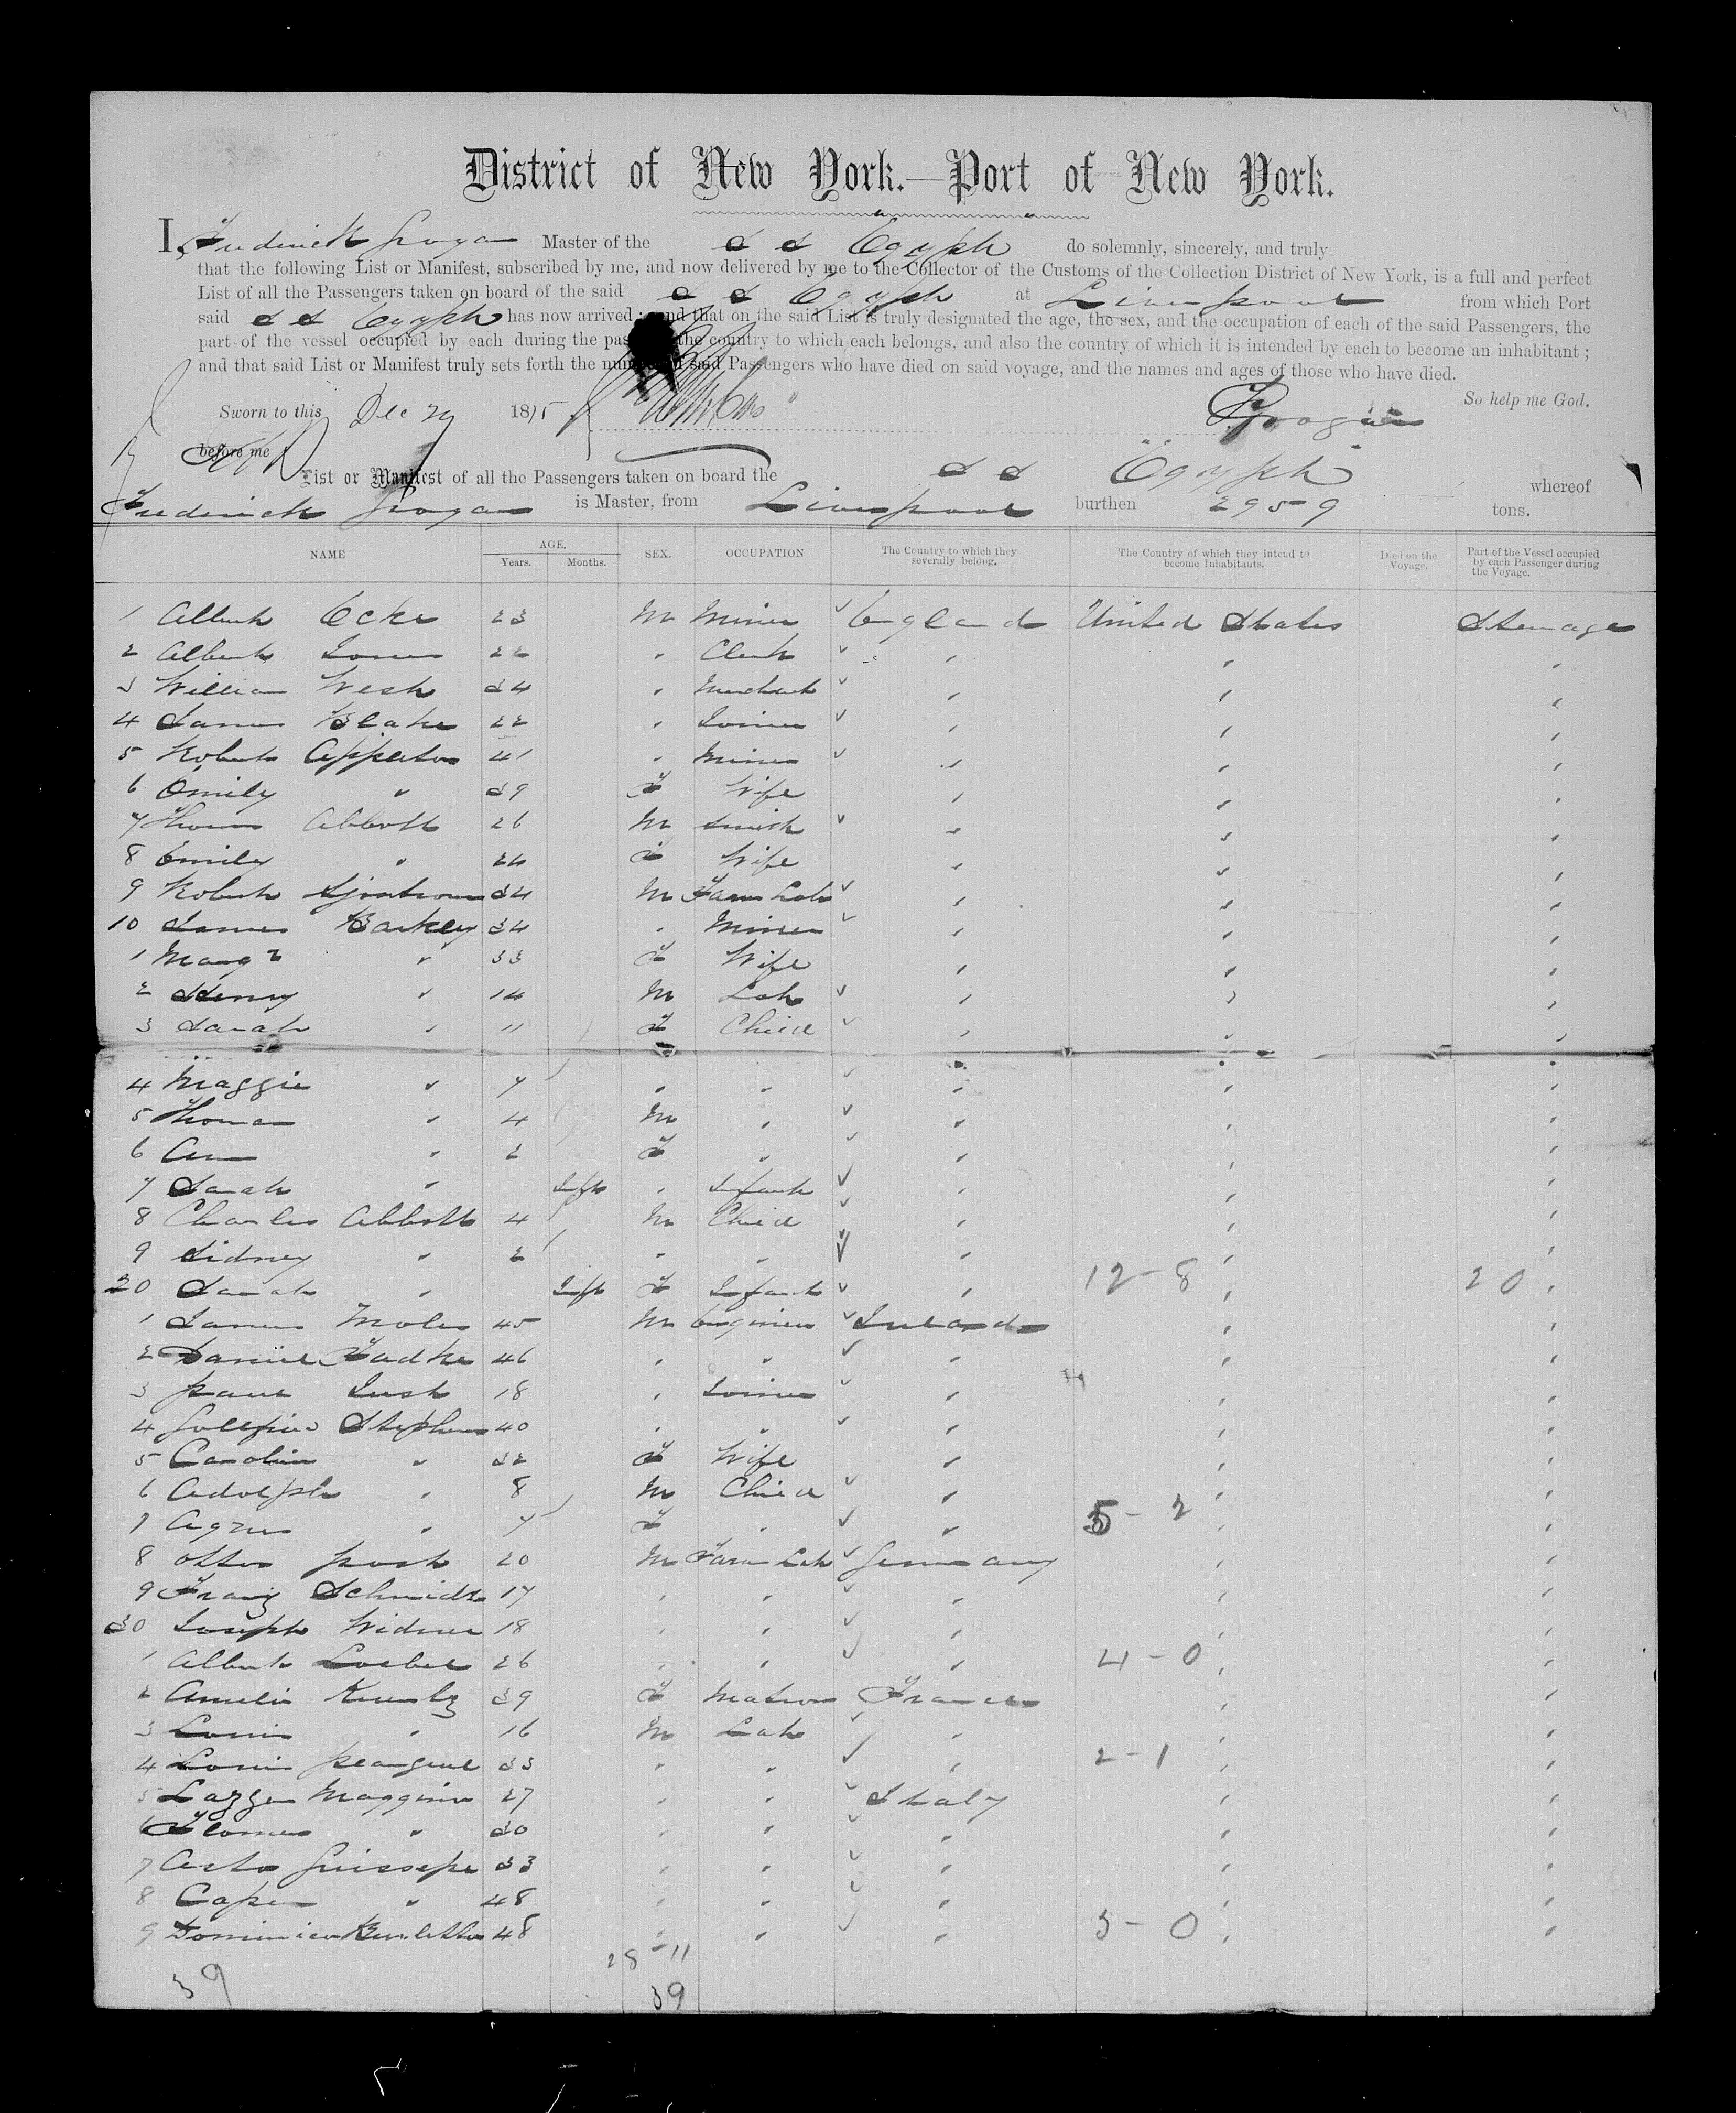 District of New York.—Port of New York.
I, Frederick Grogan Master of the S S Egypt do solemnly, sincerely, and truly
that the following List or Manifest, subscribed by me, and now delivered by me to the Collector of the Customs of the Collection District of New York, is a full and perfect
List of all the Passengers taken on board of the said S S Egypt at Liverpool from which Port
said S S Egypt has now arrived; and that on the said List is truly designated the age, the sex, and the occupation of each of the said Passengers, the
part of the vessel occupied by each during the the country to which each belongs, and also the country of which it is intended by each to become an inhabitant;
and that said List or Manifest truly sets forth the said Passengers who have died on said voyage, and the names and ages of those who have died.
Sworn to this Dec 29 1875 F Grogan So help me God.
before me
List or Manifest of all the Passengers taken on board the S S Egypt whereof
Frederick Grogan is Master, from Liverpool burthen 2959 tons.
NAME AGE. Years. Months. SEX. OCCUPATION The Country to which they severally belong. The Country of which they intend to become Inhabitants. Died on the Voyage. Part of the Vessel occupied by each Passenger during the Voyage.
1 Albert Ecke 23 M Miner England United States Steerage
2 Albert Jones 22 " Clerk " " "
3 William West 34 " Merchant " " "
4 James Blake 22 " Joiner " " "
5 Robert Appleton 41 " Miner " " "
6 Emily " 39 F Wife " " "
7 Thomas Abbott 26 M Smith " " "
8 Emily " 24 F Wife " " "
9 Robert 34 M Farm Lab " " "
10 James Barkley 34 " Miner " " "
1 Margt " 33 F Wife " " "
2 Henry " 14 M Lab " " "
3 Sarah " 11 F Child " " "
4 Maggie " 7 " " " " "
5 Thomas " 4 M " " " "
6 Ann " 2 F " " " "
7 Sarah " Inft " Infant " " "
8 Charles Abbott 4 M Child " " "
9 Sidney " 2 " " " " "
20 Sarah " Inft F Infant " 12-8 " 20 "
1 James Moles 45 M Engineer Ireland " "
2 Daniel Fadke 46 " " " " "
3 Paul Lush 18 " Joiner " " "
4 Stephens 40 " " " " "
5 Caroline " 32 F Wife " " "
6 Adolph " 8 M Child " " "
7 Agnes " 7 F " " 5-2 " "
8 Otto Posh 20 M Farm Lab Germany " "
9 Franz Schmidt 17 " " " " "
30 Joseph Widmer 18 " " " " "
1 Albert Loebel 26 " " " 4-0 " "
2 Amelia 39 F Matron France " "
3 Louis " 16 M Lab " " "
4 Louis 33 " " " 2-1 " "
5 Maggini 27 " " Italy " "
6 " 30 " " " " "
7 Guisseppe 33 " " " " "
8 " 48 " " " " "
9 Dominico 48 " " " 5-0 " "
28-11
39 39